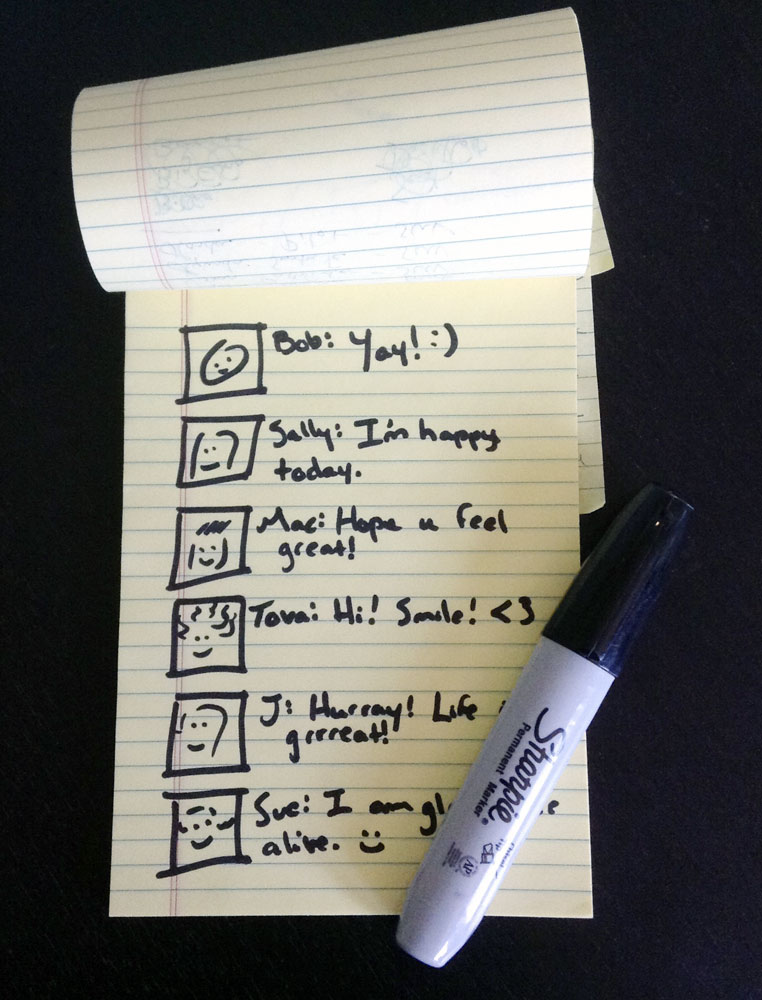 Bob: Yay! :)
Sally: I'm happy
today.
Mac: Hope u feel
great!
Tova: Hi! Smile! <3
J: Hurray! Life
grrreat!
Sue: I am
alive. :)
Sharpie
Permanent Marker
AP